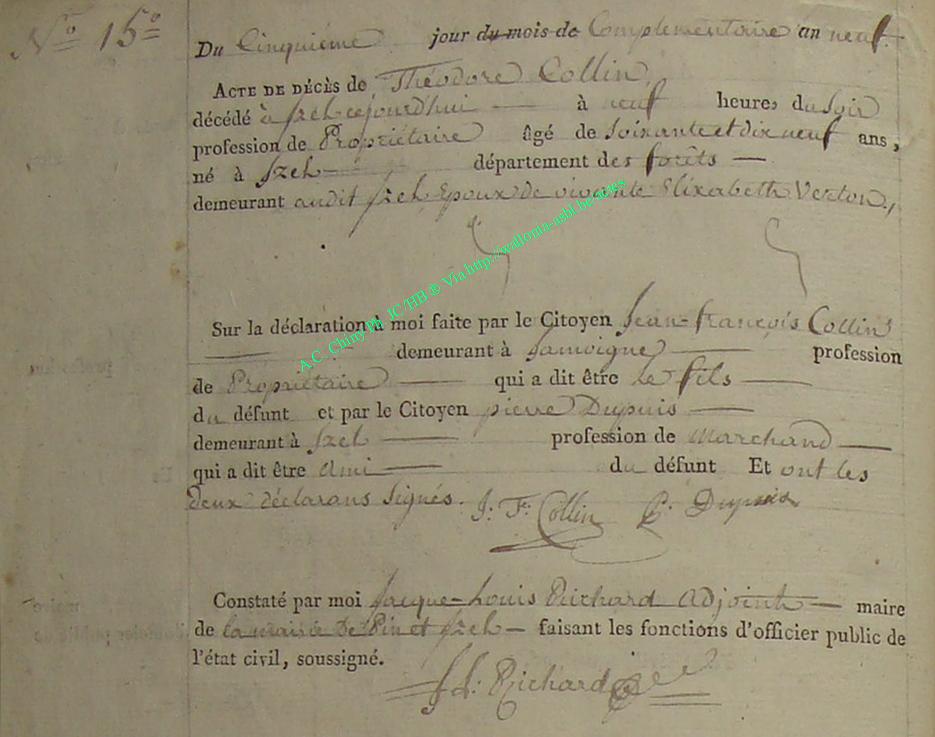 N.º 15º
Du Cinquieme jour du mois de Complementaire an neuf.
ACTE DE DÉCÈS de Théodore Collin
décédé à Izel cejourdhui à neuf heures du Soir
profession de Propriétaire âgé de Soixante et dix neuf ans,
né à Izel département des forêts
demeurant audit Izel Epoux de vivante Elizabeth Verton,
Sur la déclaration à moi faite par le Citoyen Jean-françois Collin
demeurant à Jamoigne profession
de Propriétaire qui a dit être le fils
du défunt et par le Citoyen pierre Dupuis
demeurant à Izel profession de Marchand
qui a dit être Ami du défunt Et ont les
deux déclarans Signés. J: F: Collin P. Dupuis
Constaté par moi Jacque-Louis Richard Adjoint maire
de la mairie De Pin et Izel faisant les fonctions d'officier public de
l'état civil, soussigné.
J L: Richard
A.C. Chiny Ph. JC/HB © Via http://wallonia-asbl.be/actes